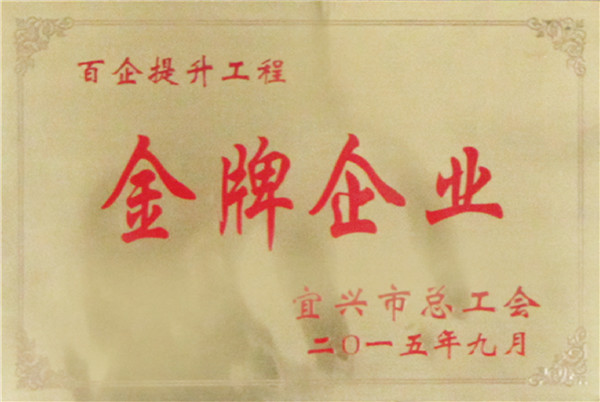 百企提升工程
金牌企业
宜兴市总工会
二〇一五年九月